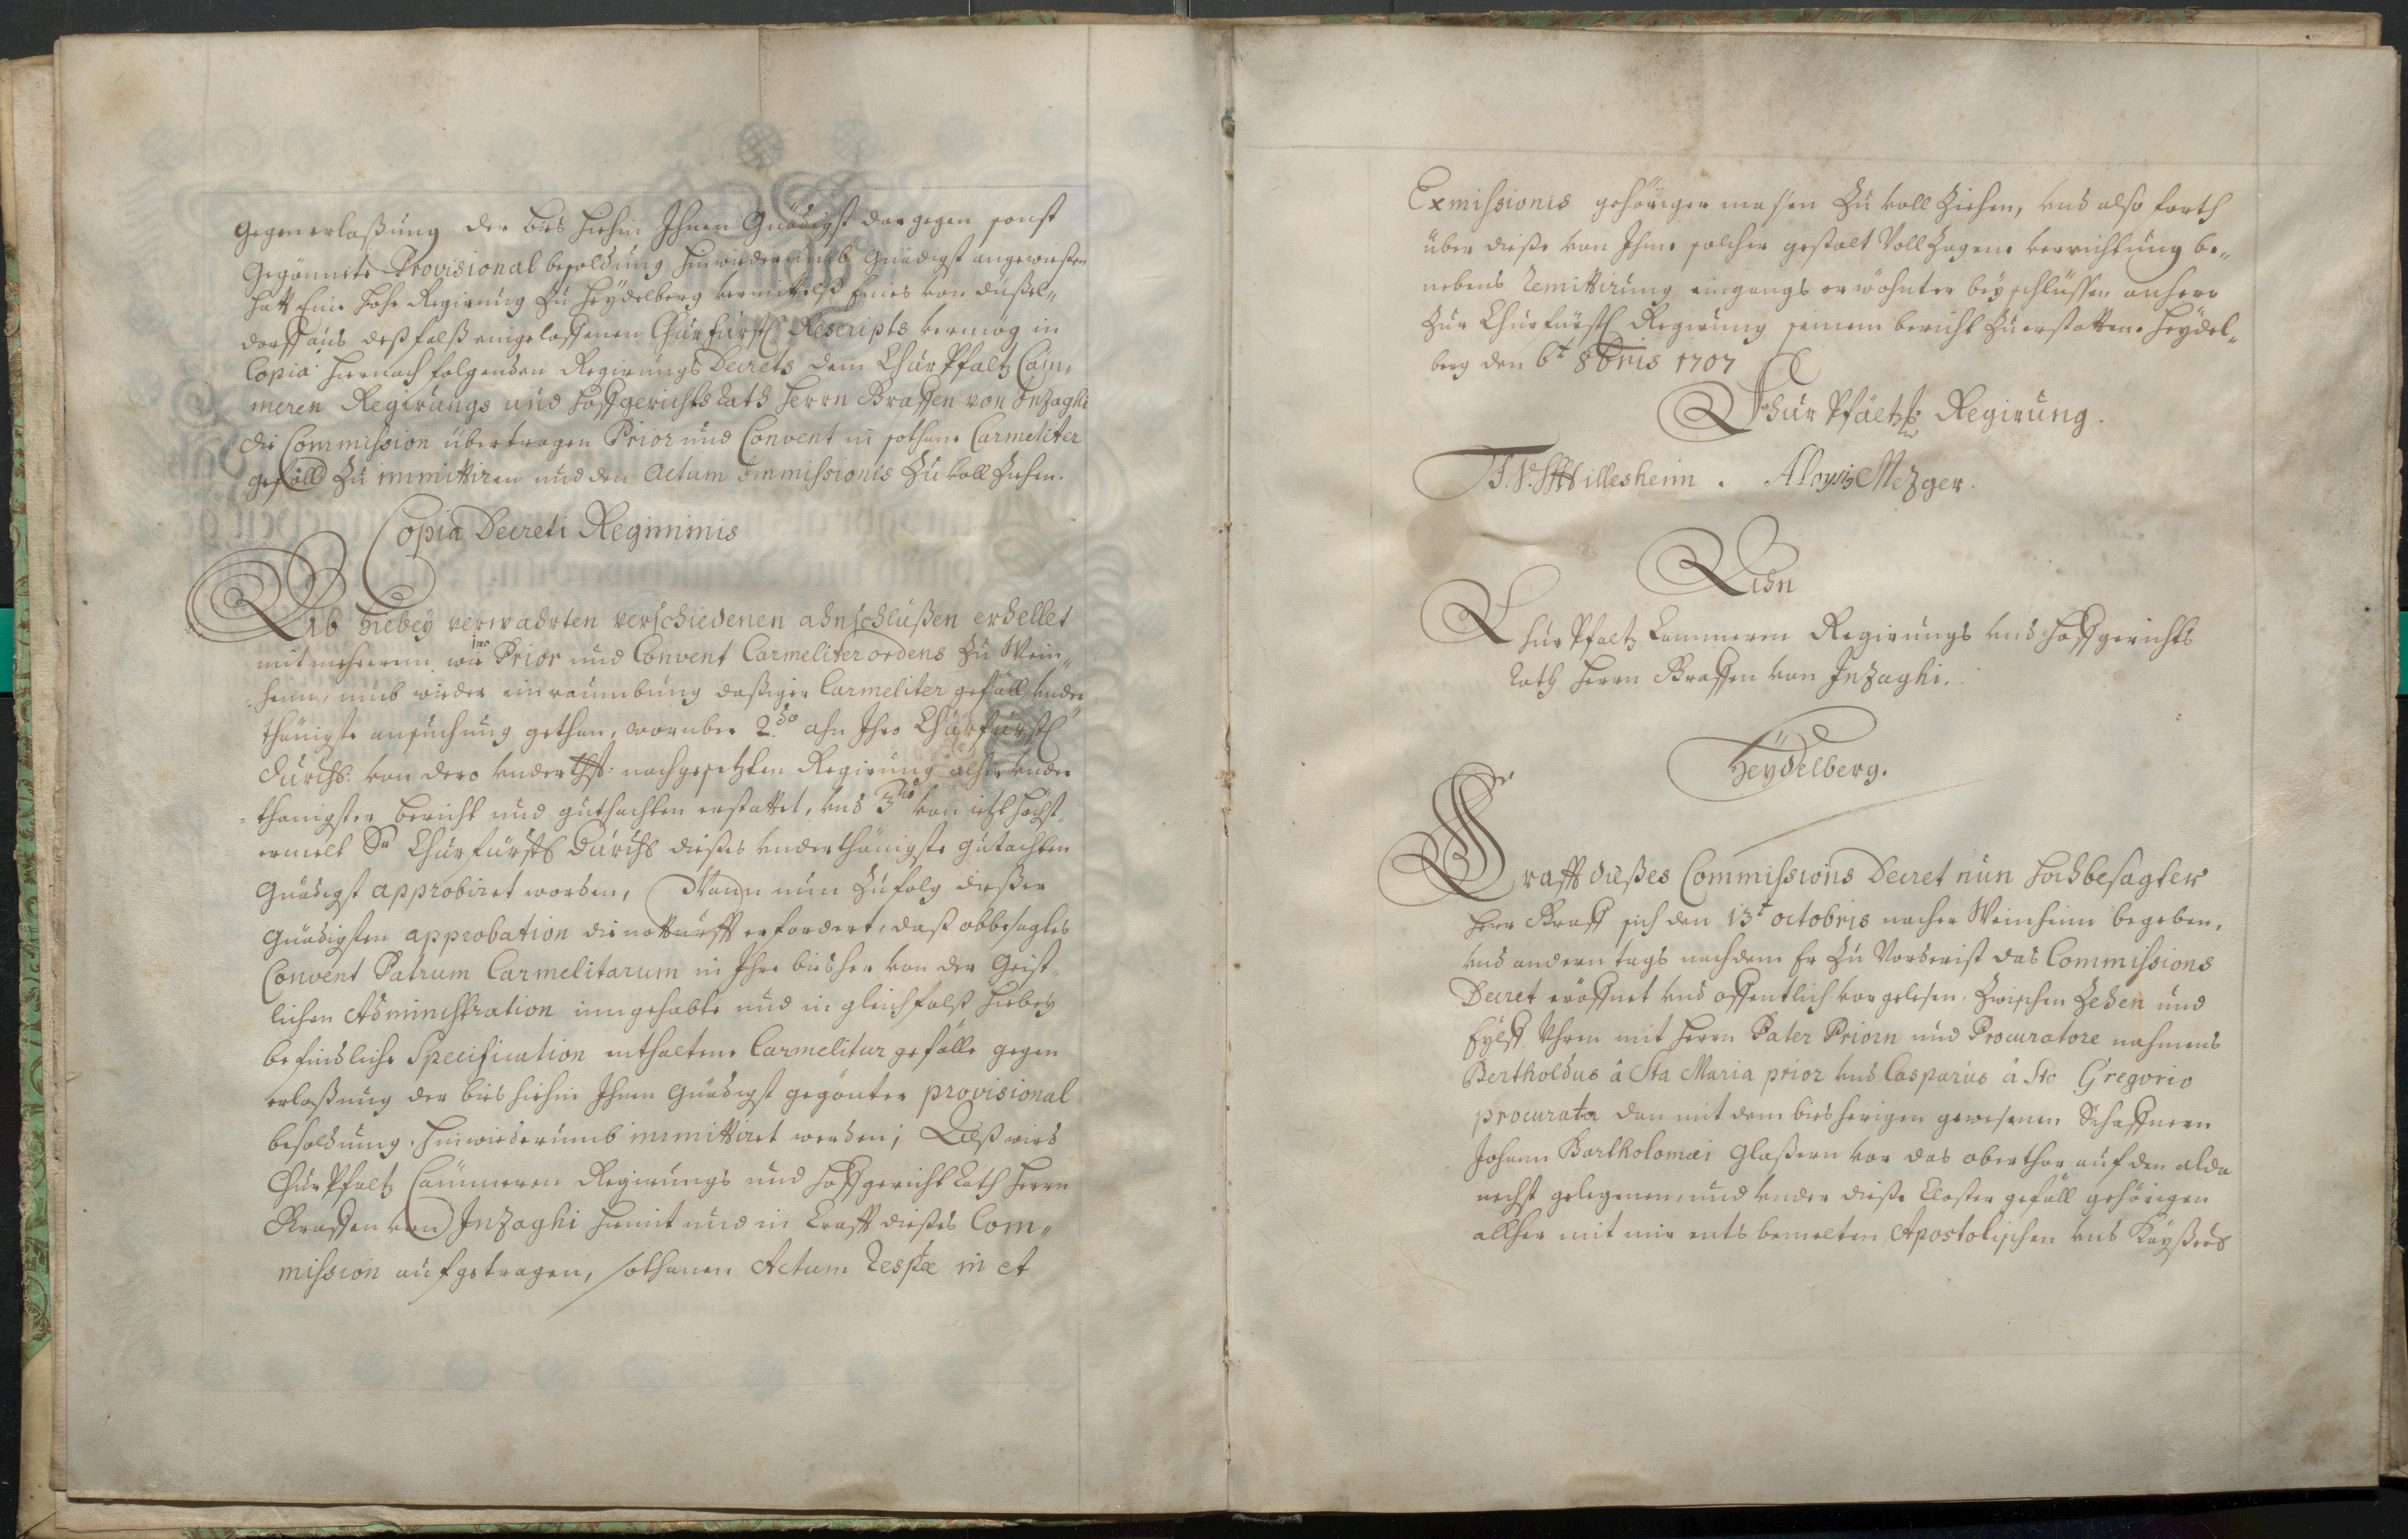 Gegenerlaßung der bies hiehin Ihnen Gnädigst dargegen sonst
Gegönnete Provisional besoldung hinwiederumb Gnädigst angewießen
hatt Eine hohe Regirung Zu Heÿdelberg vermittelß Eines von Düßel„
dorff aus deßfalß eingeloffenen Churfürstl Rescripts vermög in
Copia hiernach folgenden Regirungs Decrets dem Chur Pfaltz Cäm„
meren Regirungs und hoffgerichts Rath Herrn Graffen von Inzaghi
die Commission übertragen Prior und Convent in sothane Carmeliter
gefäll Zu immittiren und den Actum Immissionis Zu voll Ziehen.
Copia Decreti Regiminis
Ab hiebeÿ verwahrten verschiedenen ahnschlüßen erhellet
mit mehrerem wie 1mo Prior und Convent Carmeliter ordens Zu Wein„
heim, umb wieder einraumbung daßiger Carmeliter gefäll under„
thänigste ansuchung gethan, worüber 2do ahn Ihro Churfürstl
Durchl: von dero underthst: nachgesetzten Regirung alhie under
thänigster bericht und guthachten erstattet, und 3tio von ietzt höchst„
ermelt Sr Churfürstl Durchl dießes underthänigste gutachten
Gnädigst approbiret worden, Wann nun Zufolg dießer
Gnädigsten approbation die notturfft erfordert, daß obbesagtes
Convent Patrum Carmelitarum in Ihre bieshero von der Geist„
lichen Administration inngehabte und in gleichfalß hiebeÿ
befindliche Specification enthaltene Carmelitur gefälle gegen
erlaßung der bies hiehin Ihnen Gnädigst gegönten provisional
besoldung hinwiederumb immittiret werden; Alß wird
Chur Pfaltz Cämmeren Regirungs und hoffgericht Rath Herrn
Graffen von Inzaghi hiemit und in Crafft dießes Com„
mission aufgetragen, sothanen Actum Respve in et
Exmissionis gehöriger massen Zu voll Ziehen, und also forth
über dieße von Ihme solcher gestalt Voll Zogene verrichtung be„
nebens Remittirung eingangs erwöhnter beÿschlüssen anhero
Zur Churfürstl Regirung seinem bericht Zu erstatten. Heÿdel„
berg den 6t 8bris 1707
Chur Pfältz: Regirung.
F. V. Hillesheim . Aloÿs Mezger.
Ahn
Chur Pfaltz Cammeren Regirungs und hoffgerichts
Rath Herrn Graffen von Inzaghi.
Heÿdelberg.
Crafft dießes Commissions Decret nun hochbesagter
Herr Graff sich den 13t octobris nacher Weinheim begeben,
und andern tags nachdem Er Zu Vorderist das Commissions
Decret eröffnet und offentlich vorgelesen, Zwischen Zehen und
Eÿlff Uhren mit Herrn Pater Priorn und Procuratore nahmens
Bertholdus â Sta Maria prior und Casparus â Sto Gregorio
procurator dan mit dem bies herigen gewesenen Schaffnern
Johann Bartholomæi Glaßern vor das oberthor auf den alda
nechst gelegenen, und under dieße Closter gefäll gehörigen
allher mit mir ents bemelten Apostolischen und Kaÿßerl